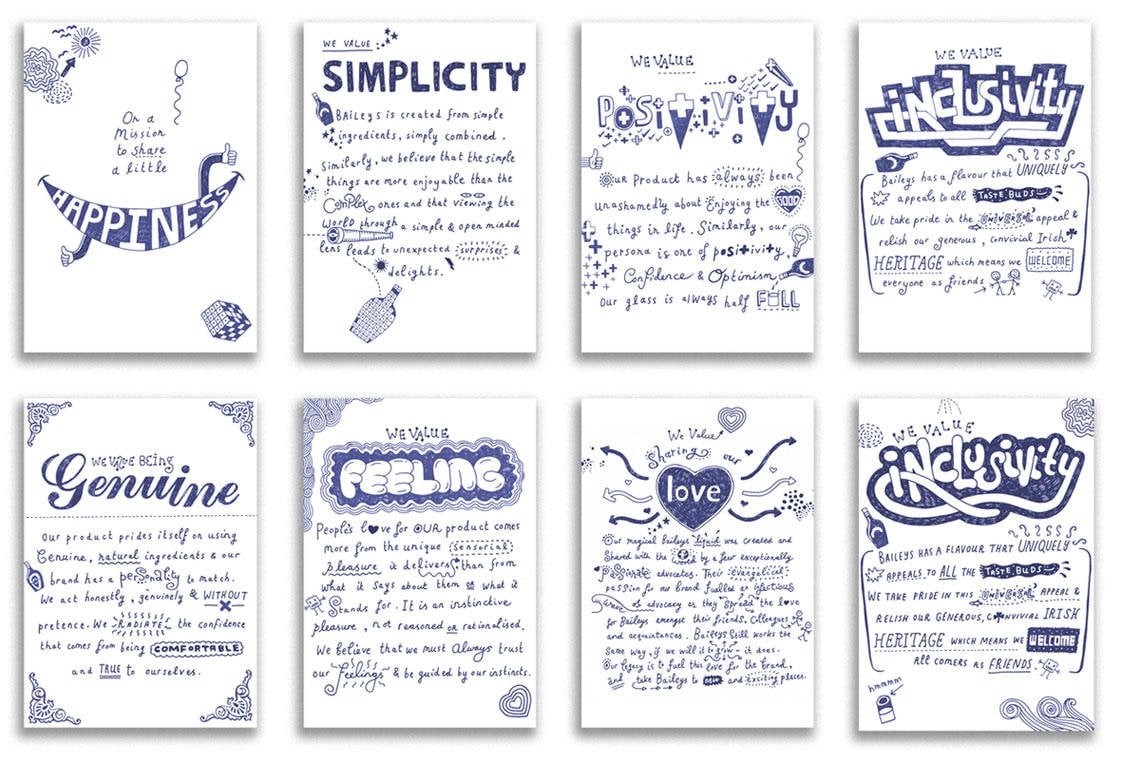 On a
Mission
to share
a little
HAPPINESS
WE VALUE
SIMPLICITY
BAILEYS is created from simple
ingredients, simply combined.
Similarly, we believe that the simple
things are more enjoyable than the
Complex ones and that viewing the
World through a simple & open minded
lens leads to unexpected surprises &
delights.
WE VALUE
POSITIVITY
Our Product has always been
unashamedly about Enjoying the GOOD
things in life. Similarly, our
persona is one of positivity,
Confidence & Optimism
Our glass is always half FULL
WE VALUE
iNCLUSiVity
Baileys has a flavour that UNIQUELY
appeals to all TASTE BUDS
We take pride in the UNIVERSAL appeal &
relish our generous, convivial Irish
HERITAGE which means we WELCOME
everyone as friends
WE VALUE BEING
Genuine
Our product prides itself on using
Genuine, natural ingredients & our
brand has a personality to match.
We act honestly, genuinely & WITHOUT
pretence. We RADIATE the confidence
that comes from being COMFORTABLE
and TRUE to ourselves.
WE VALUE
FEELING
People's love for OUR product comes
more from the unique Sensorial
pleasure it delivers than from
what it says about them or what it
Stands for. It is an instinctive
pleasure, not reasoned or rationalised.
We believe that we must Always trust
our Feelings & be guided by our instincts.
We Value
Sharing our
love
Our magical Baileys liquid was created and
Shared with the world by a few exceptionally
passionate advocates. Their evangelical
passion for our brand fuelled an
of advocacy as they spread the love
for Baileys amongst their friends, Colleagues
and acquaintances. Baileys Still works the
Same way, if we will it to grow - it does.
Our legacy is to fuel this love for the brand,
and take Baileys to new and exciting places.
WE VALUE
iNCLUSiVity
BAILEYS HAS A FLAVOUR THAT UNIQUELY
APPEALS TO ALL THE TASTE BUDS
WE TAKE PRIDE IN THIS UNIVERSAL APPEAL &
RELISH OUR GENEROUS, CONVIVIAL IRISH
HERITAGE WHICH MEANS WE WELCOME
all comers as FRIENDS.
hmmmm